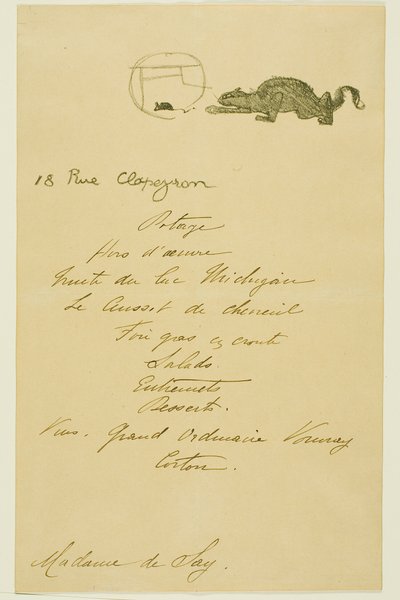 18 Rue Clapeyron
Potage
Hors d'oeuvre
Truite du lac Michigan
Le Cuissot de chevreuil
Foie gras en croute
Salads.
Entremets
Desserts.
Vins. Grand Ordinaire Vouvray
Corton.
Madame de Say.